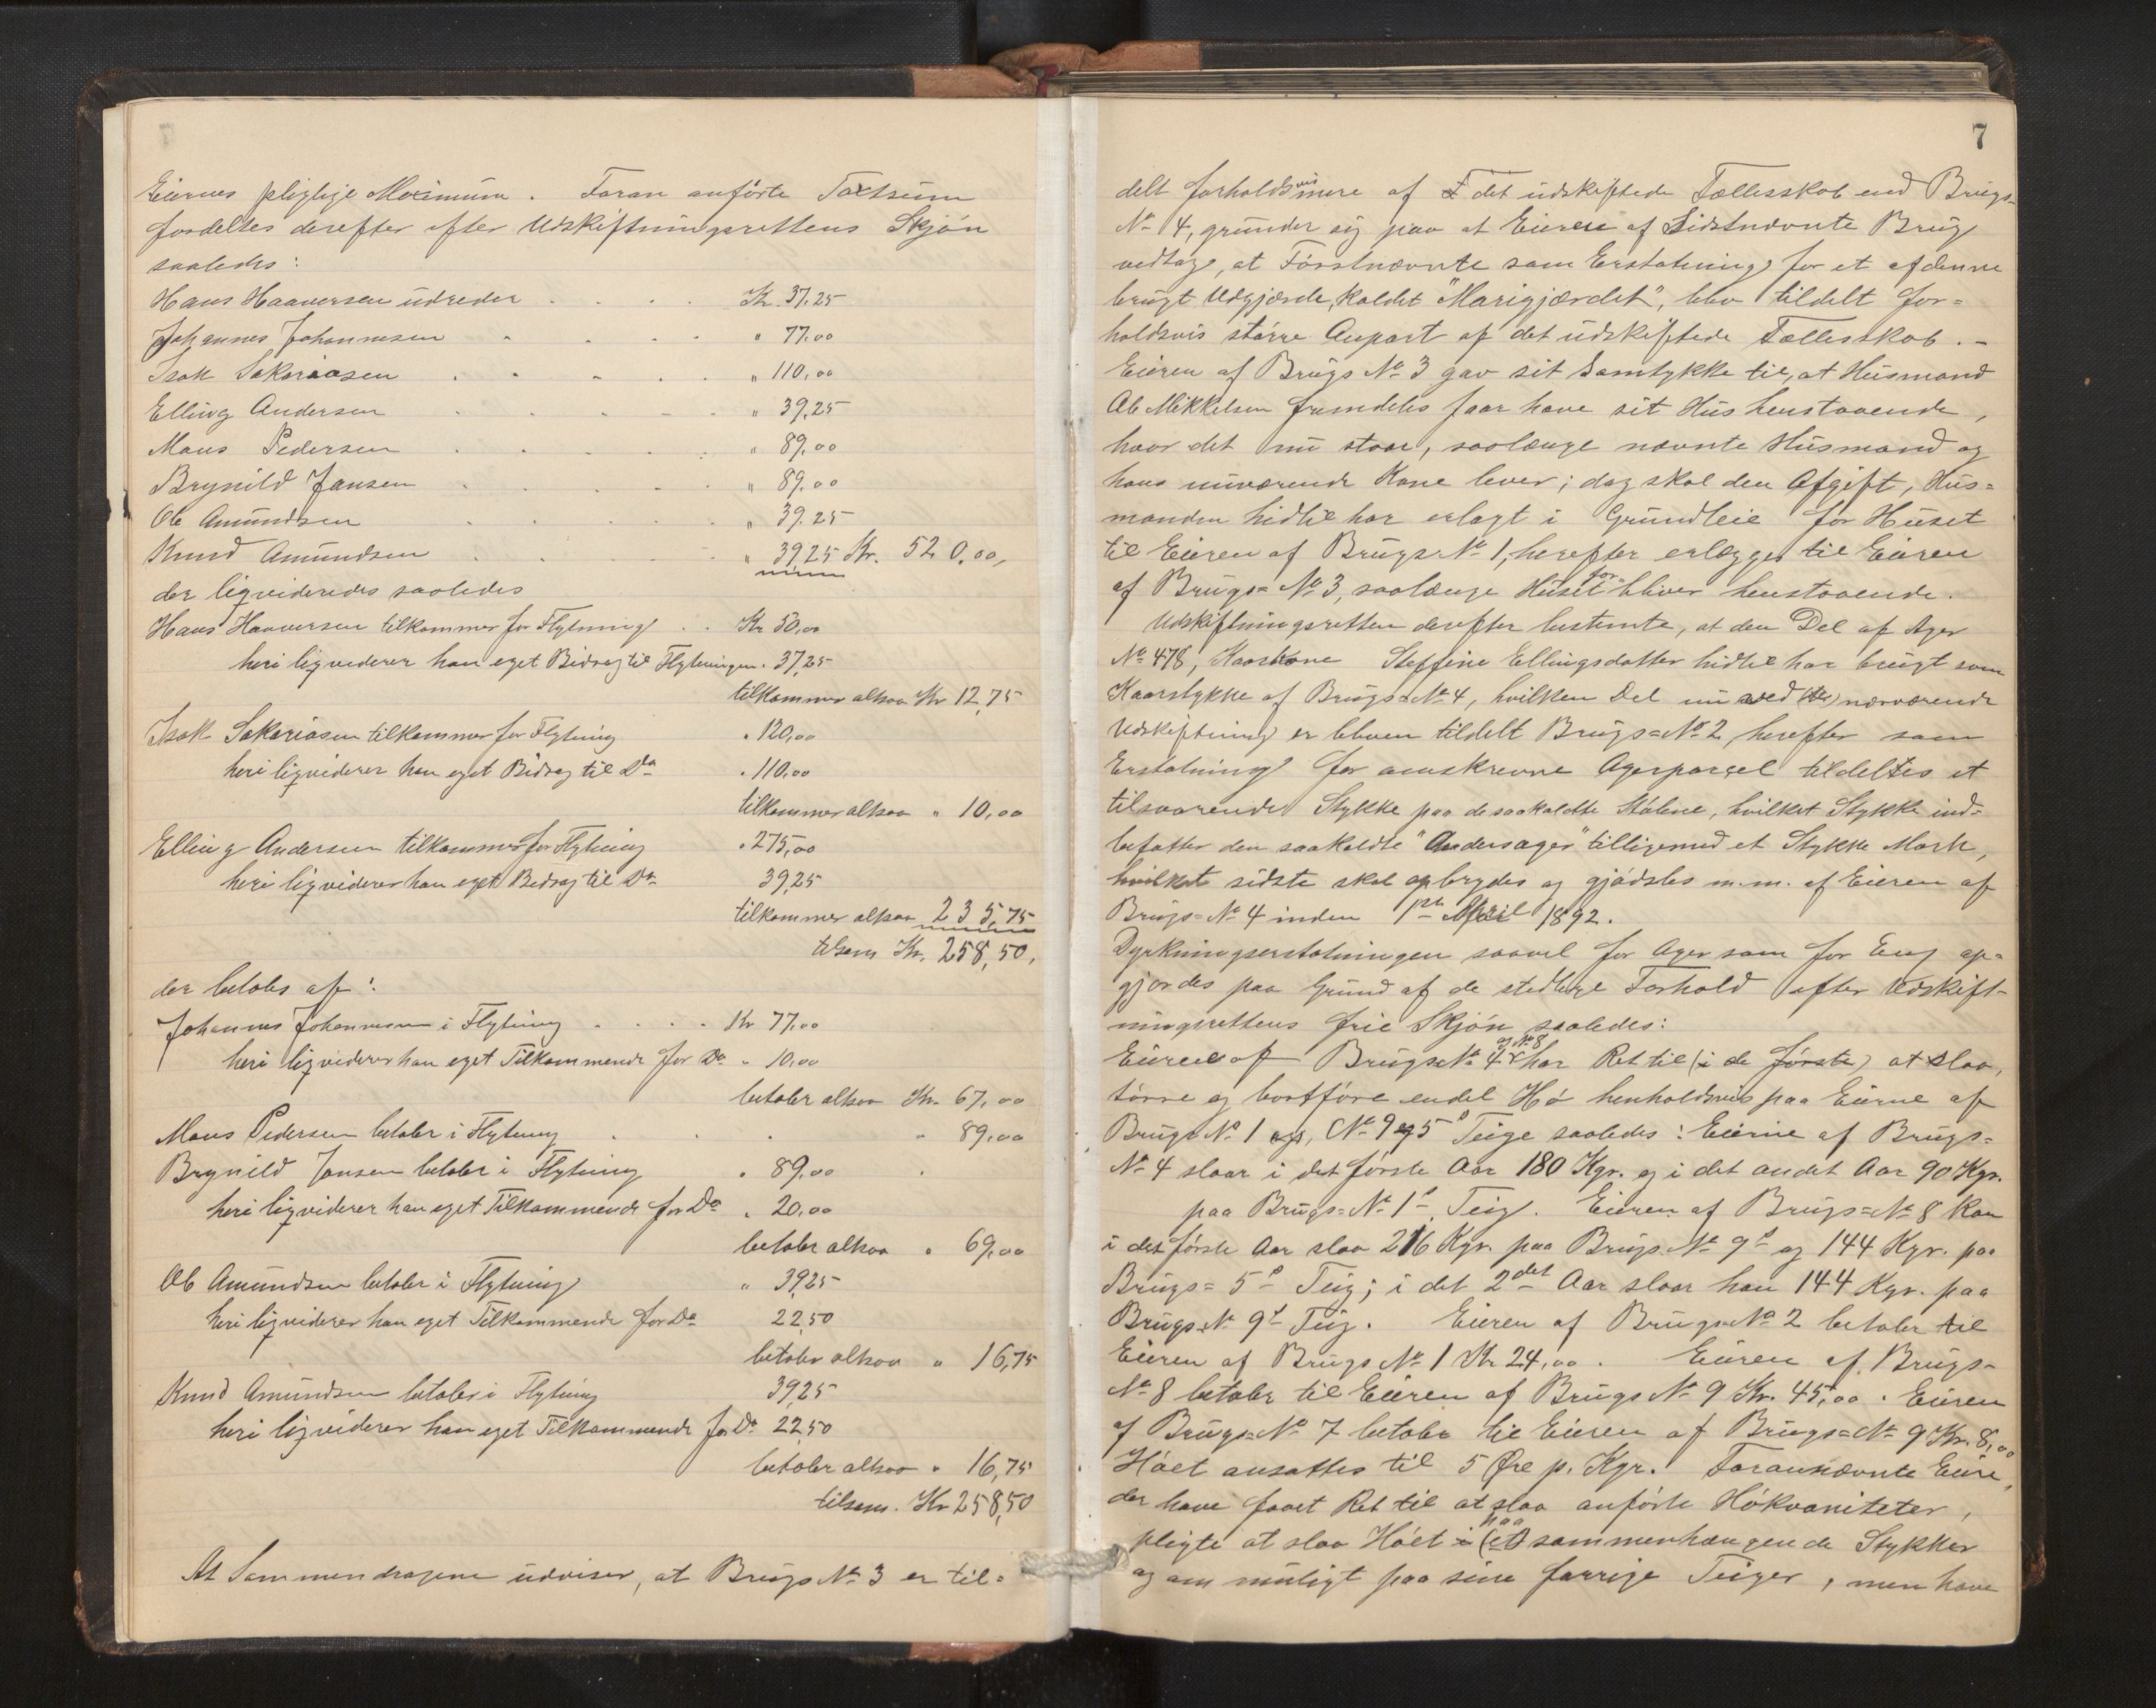 Eiernes pligtige Maximum. Foran anførte Taxtsum
fordeltes derefter efter Udskiftningsrettens Skjøn
saaledes:
Hans Haaversen udreder . . . . Kr. 37.25
Johannes Johannesen . . . . " 77.00
Isak Sakariasen . . . . . " 110,00
Elling Andersen . . . . . " 39,25
Mons Pedersen . . . . . " 89,00
Brynild Jansen . . . . " 89,00
Ole Amundsen . . . . " 39.25
Knud Amundsen . . . . " 39,25 Kr. 520,00,
der ligvideredes saaledes
Hans Haaversen tilkommer for Flytning . . Kr 50,00
heri ligviderer han eget Bidrag til Flytningen . 37,25
tilkommer altsaa Kr 12,75
Isak Sakariasen tilkommer for Flytning " 120,00
heri ligviderer han eget Bidrag til Do " 110,00
tilkommer altsaa " 10,00
Elling Andersen tilkommer for Flytning " 275,00
heri ligviderer han eget Bidrag til Do 39,25
tilkommer altsaa 235,75
tilsam Kr. 258,50,
der betales af:
Johannes Johannesen i Flytning . . . . Kr 77,00
heri ligviderer han eget Tilkommende for Do " 10,00
betaler altsaa Kr. 67,00
Mons Pedersen betaler i Flytning . . . " 89,00
Brynild Jansen betaler i Flytning " 89,00
heri ligviderer han eget Tilkommende for Do " 20,00
betaler altsaa " 69,00
Ole Amundsen betaler i Flytning " 39,25
heri ligviderer han eget Tilkommende for Do 22,50
betaler altsaa " 16,75
Knud Amundsen betaler i Flytning 39,25
heri ligviderer han eget Tilkommende for Do 22,50
betaler altsaa " 16,75
tilsam. Kr 258,50
At Sammendragene udviser, at Brugs No 3 er til=
7
delt forholdsvis mere af det udskiftede Fællesskab end Brugs-
No 4, grunder sig paa at Eieren af Sidstnævnte Brug
vedtog, at Førstnævnte som Erstatning for et af denne
brugt Udgjærde, kaldet "Marigjærdet", blev tildelt for=
holdsvis større Anpart af det udskiftede Fællesskab. -
Eieren af Brugs No 3 gav sit Samtykke til, at Husmand
Ole Mikkelsen fremdeles faar have sit Hus henstaaende,
hvor det nu staar, saalænge nævnte Husmand og
hans nuværende Kone lever; dog skal den Afgift, Hus=
manden hidtil har erlagt i Grundleie for Huset
til Eieren af Brugs No 1, herefter erlægges til Eieren
af Brugs= No 3, saalænge Huset for bliver henstaaende.
Udskiftningsretten derefter bestemte, at den Del af Ager
No 478, Kaarkone Steffine Ellingsdatter hidtil har brugt som
Kaarstykke af Brugs= No 4, hvilken Del nu ved (de) nærværende
Udskiftning er bleven tildelt Brugs= No 2, herefter som
Erstatning for omskrevne Agerparcel tildeltes et
tilsvarende Stykke paa de saakaldte Stølene, hvilket Stykke ind=
befatter den saakaldte "Andersager" tilligemed et Stykke Mark,
hvilket sidste skal opbrydes og gjødsles m.m. af Eieren af
Brugs= No 4 inden 1ste April 1892.
Dyrkningserstatningen saavel for Ager som for Eng op=
gjordes paa Grund af de stedlige Forhold efter Udskift-
ningsrettens frie Skjøn saaledes:
Eieren af Brugs No 4 og No 8 har Ret til (i de første) at slaa,
tørre og bortføre endel Hø henholdsvis paa Eierne af
Brugs No 1 og, No 9 og 5s Teige saaledes: Eierne af Brugs=
No 4 slaar i det første Aar 180 Kgr. og i det andet Aar 90 Kgr.
paa Brugs= No 1s Teig. Eieren af Brugs= No 8 kan
i det første Aar slaa 216 Kgr. paa Brugs No 9s og 144 Kgr. paa
Brugs= 5s Teig; i det 2det Aar slaar han 144 Kgr. paa
Brugs No 9s Teig. Eieren af Brugs No 2 betaler til
Eieren af Brugs No 1 Kr 24,00. Eieren af Brugs-
No 8 betaler til Eieren af Brugs No 9 Kr. 45,00. Eieren
af Brugs= No 7 betaler til Eieren af Brugs= No 9 Kr. 8,00
Høet ansattes til 5 Øre p. Kgr. Forannævnte Eiere,
der have faaet Ret til at slaa anførte Høkvaniteter,
pligte at slaa Høet i paa (et) sammenhængende Stykker
og om muligt paa sine forrige Teiger, men have